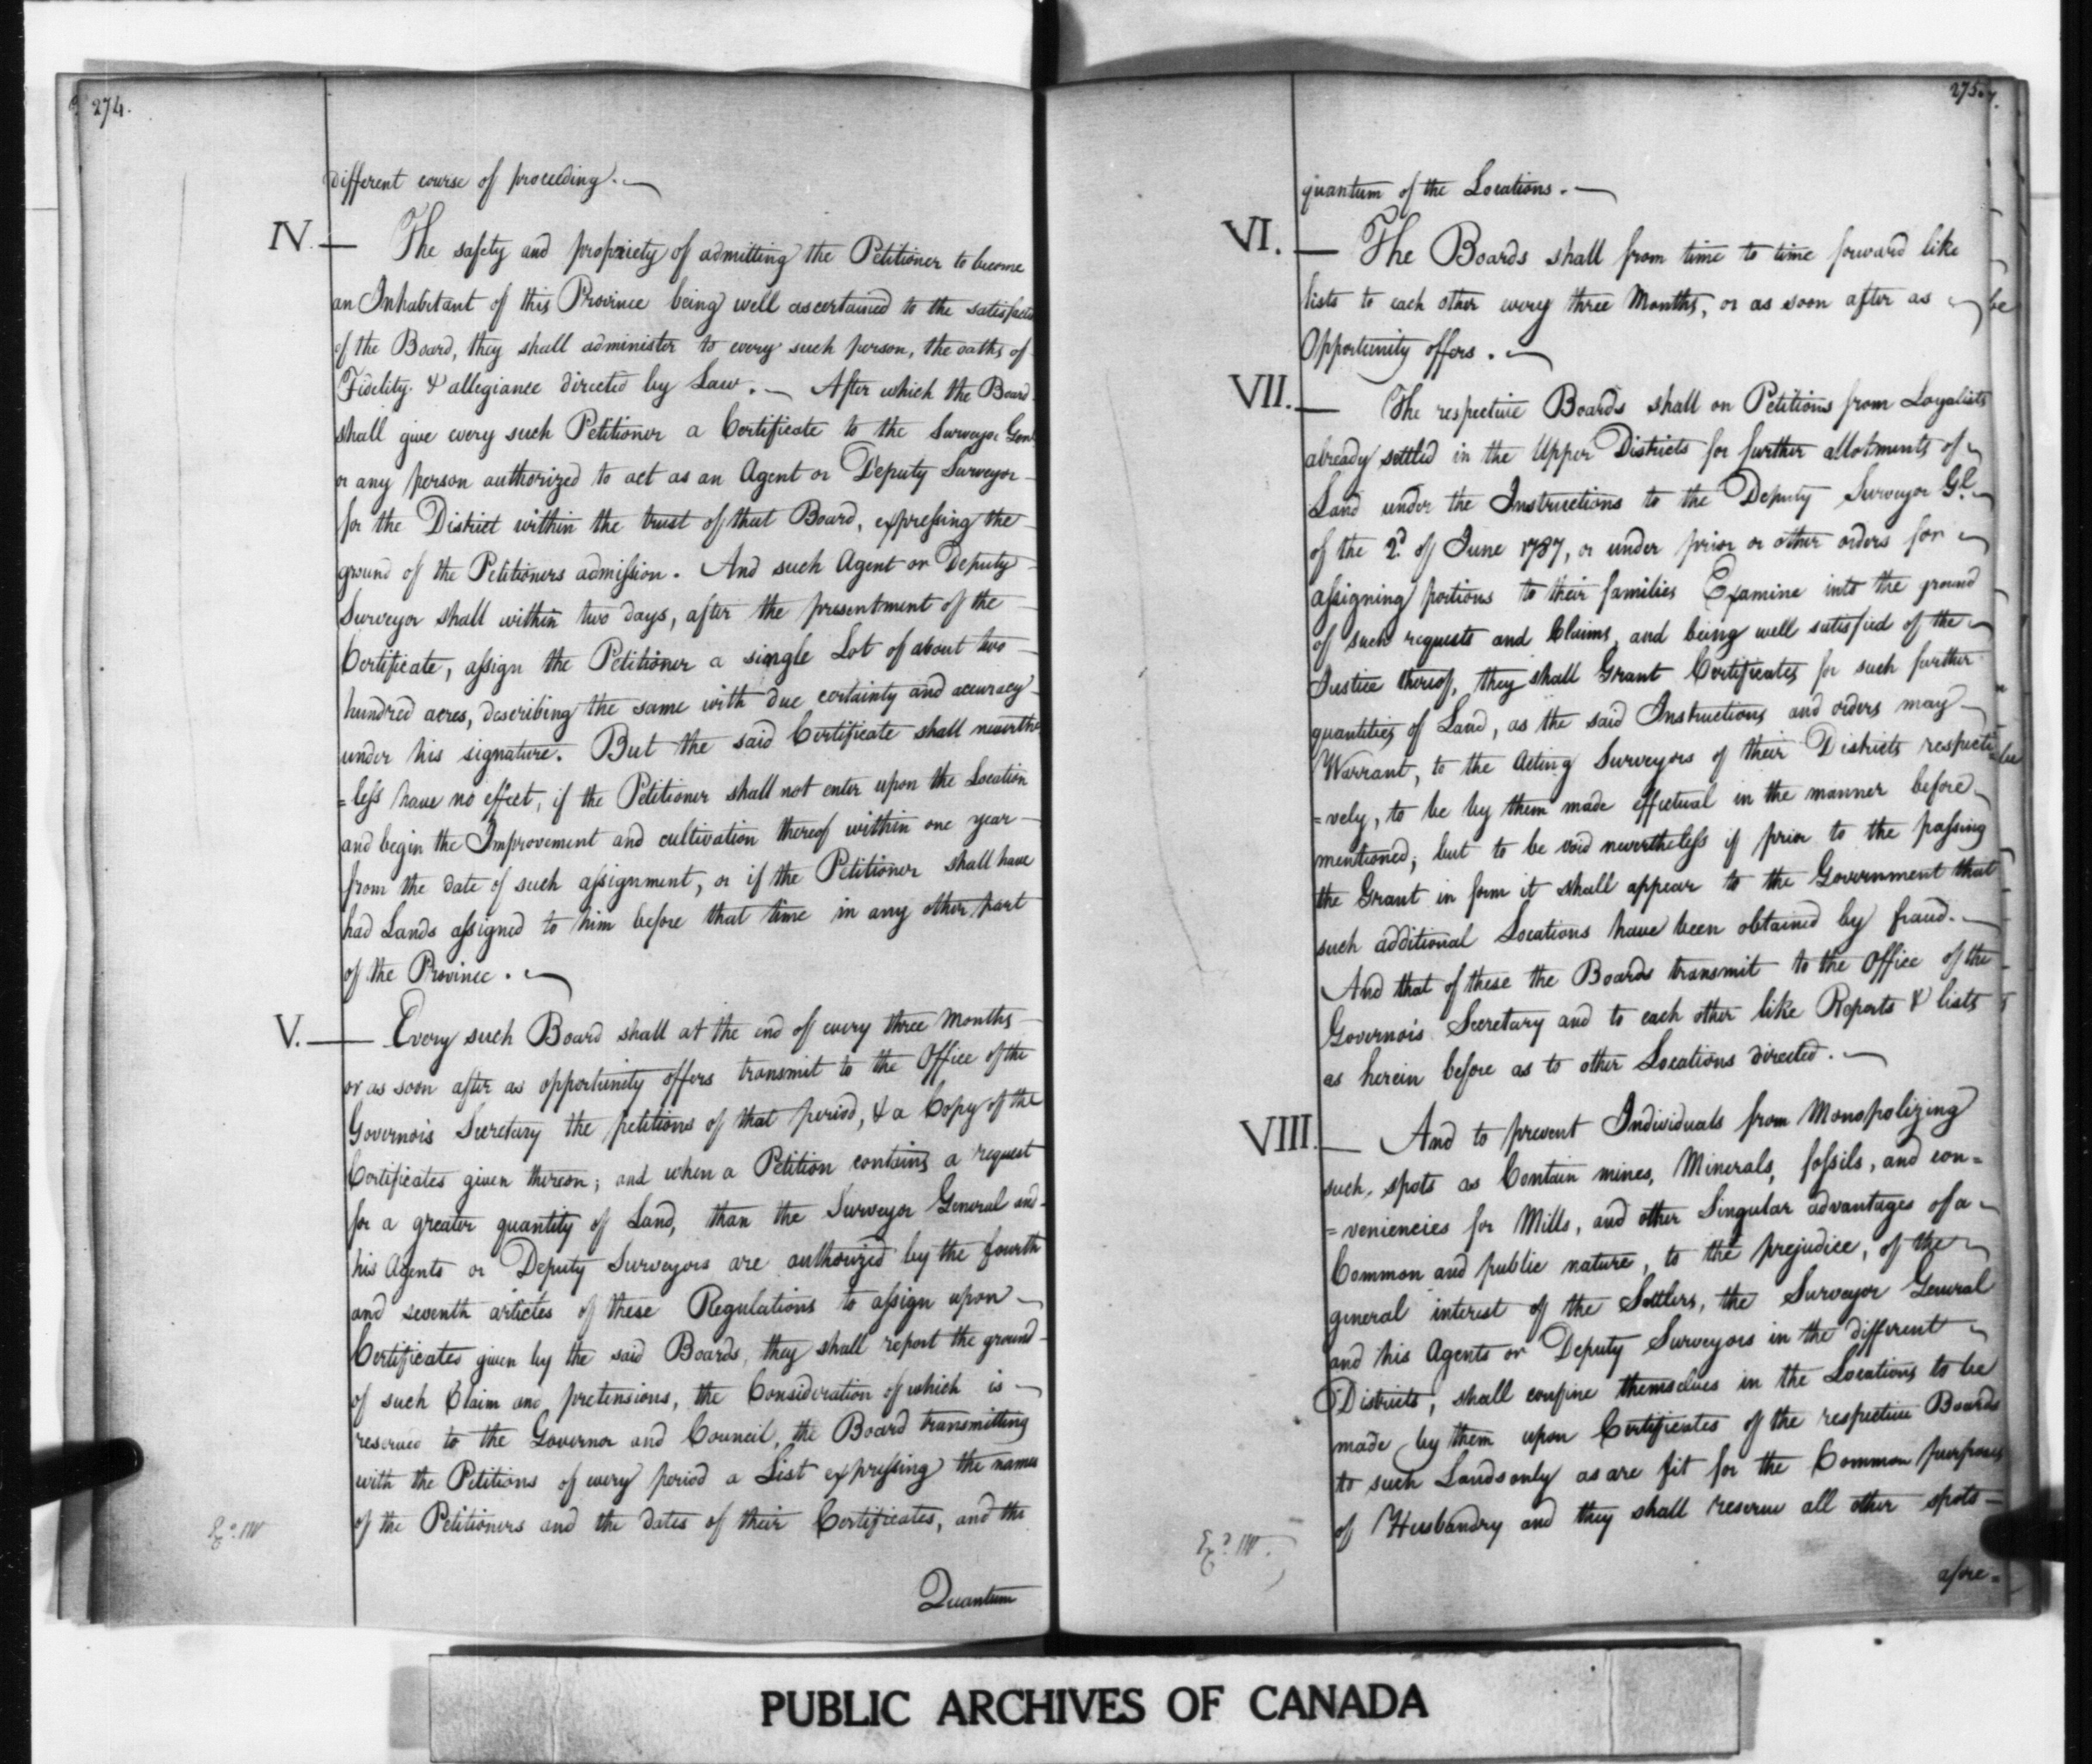 274.
different course of proceeding. —
IV. — The safety and propriety of admitting the Petitioner to become
an Inhabitant of this Province being well ascertained to the satisfacti
of the Board, they shall administer to every such person, the oaths of
Fidelity & allegiance directed by Law. — After which the Board
shall give every such Petitioner a Certificate to the Surveyor Genl
or any person authorized to act as an Agent or Deputy Surveyor
for the District within the trust of that Board, expressing the
ground of the Petitioners admission. And such Agent or Deputy
Surveyor shall within two days, after the presentment of the
Certificate, assign the Petitioner a single Lot of about two
hundred acres, describing the same with due certainty and accuracy
under his signature. But the said Certificate shall neverthe
=less have no effect, if the Petitioner shall not enter upon the Location
and begin the Improvement and cultivation thereof within one year
from the date of such assignment, or if the Petitioner shall have
had Lands assigned to him before that time in any other part
of the Province. —
V. — Every such Board shall at the end of every three Months
or as soon after as opportunity offers transmit to the Office of the
Governois Secretary the petitions of that period, & a Copy of the
Certificates given thereon; and when a Petition contains a request
for a greater quantity of Land, than the Surveyor General and
his Agents or Deputy Surveyors are authorized by the fourth
and seventh articles of these Regulations to assign upon
Certificates given by the said Boards, they shall report the ground
of such Claim and pretensions, the Consideration of which is
reserved to the Governor and Council, the Board transmitting
with the Petitions of every period a List expressing the names
of the Petitioners and the dates of their Certificates, and the
Quantum
275.
quantum of the Locations. —
VI. — The Boards shall from time to time forward like
lists to each other every three Months, or as soon after as
Opportunity offers. —
VII. — The respective Boards shall on Petitions from Loyalists
already settled in the Upper Districts for further allotments of
Land under the Instructions to the Deputy Surveyor Gl.
of the 2d of June 1787, or under prior or other orders for
assigning portions to their families Examine into the ground
of such requests and Claims, and being well satisfied of the
Justice thereof, they shall Grant Certificates for such further
quantities of Land, as the said Instructions and orders may
Warrant, to the Acting Surveyors of their Districts respecti
=vely, to be by them made effectual in the manner before
mentioned; but to be void nevertheless if prior to the passing
the Grant in form it shall appear to the Government that
such additional Locations have been obtained by fraud. —
And that of these the Boards transmit to the Office of the
Governois Secretary and to each other like Reports & lists
as herein before as to other Locations directed. —
VIII. — And to prevent Individuals from Monopolizing
such, spots as Contain mines, Minerals, fossils, and con=
=veniencies for Mills, and other Singular advantages of a
Common and public nature, to the prejudice, of the
general interest of the Settlers, the Surveyor General
and his Agents or Deputy Surveyors in the different
Districts, shall confine themselves in the Locations to be
made by them upon Certificates of the respective Boards
to such Lands only as are fit for the Common purposes
of Husbandry and they shall reserve all other spots
afore=
PUBLIC ARCHIVES OF CANADA